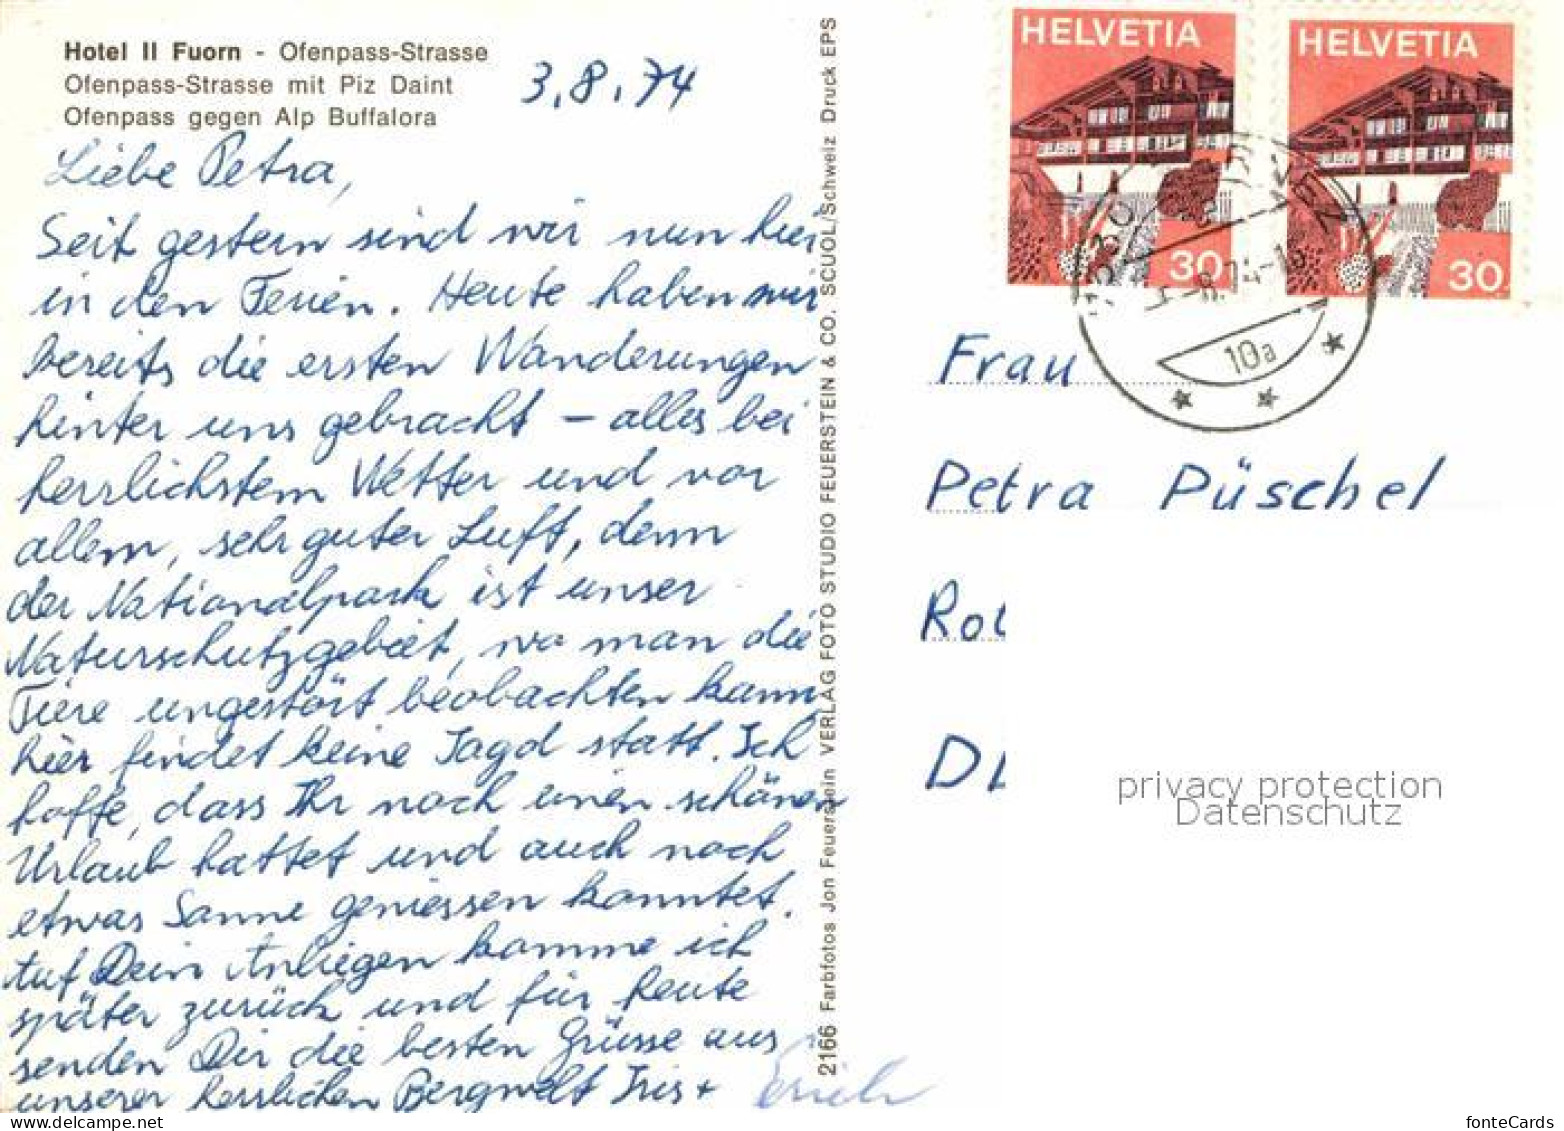 Hotel Il Fuorn - Ofenpass-Strasse
Ofenpass-Strasse mit Piz Daint
Ofenpass gegen Alp Buffalora
3.8.74
Liebe Petra,
Seit gestern sind wir nun hier
in den Ferien. Heute haben wir
bereits die ersten Wanderungen
hinter uns gebracht – alles bei
herrlichstem Wetter und vor
allem, sehr guter Luft, denn
der Nationalpark ist unser
Naturschutzgebiet, wo man die
Tiere ungestört beobachten kann,
hier findet keine Jagd statt. Ich
hoffe, dass Ihr noch einen schönen
Urlaub hattet und auch noch
etwas Sonne geniessen konntet.
Auf Dein Anliegen komme ich
später zurück und für heute
senden Dir die besten Grüsse aus
unserer herrlichen Bergwelt Iris +
Erich
2166 Farbfotos Jon Feuerstein VERLAG FOTO STUDIO FEUERSTEIN & CO. SCUOL/Schweiz Druck EPS
HELVETIA
30
HELVETIA
30
10a
Frau
Petra Püschel
privacy protection
Datenschutz
fonteCards